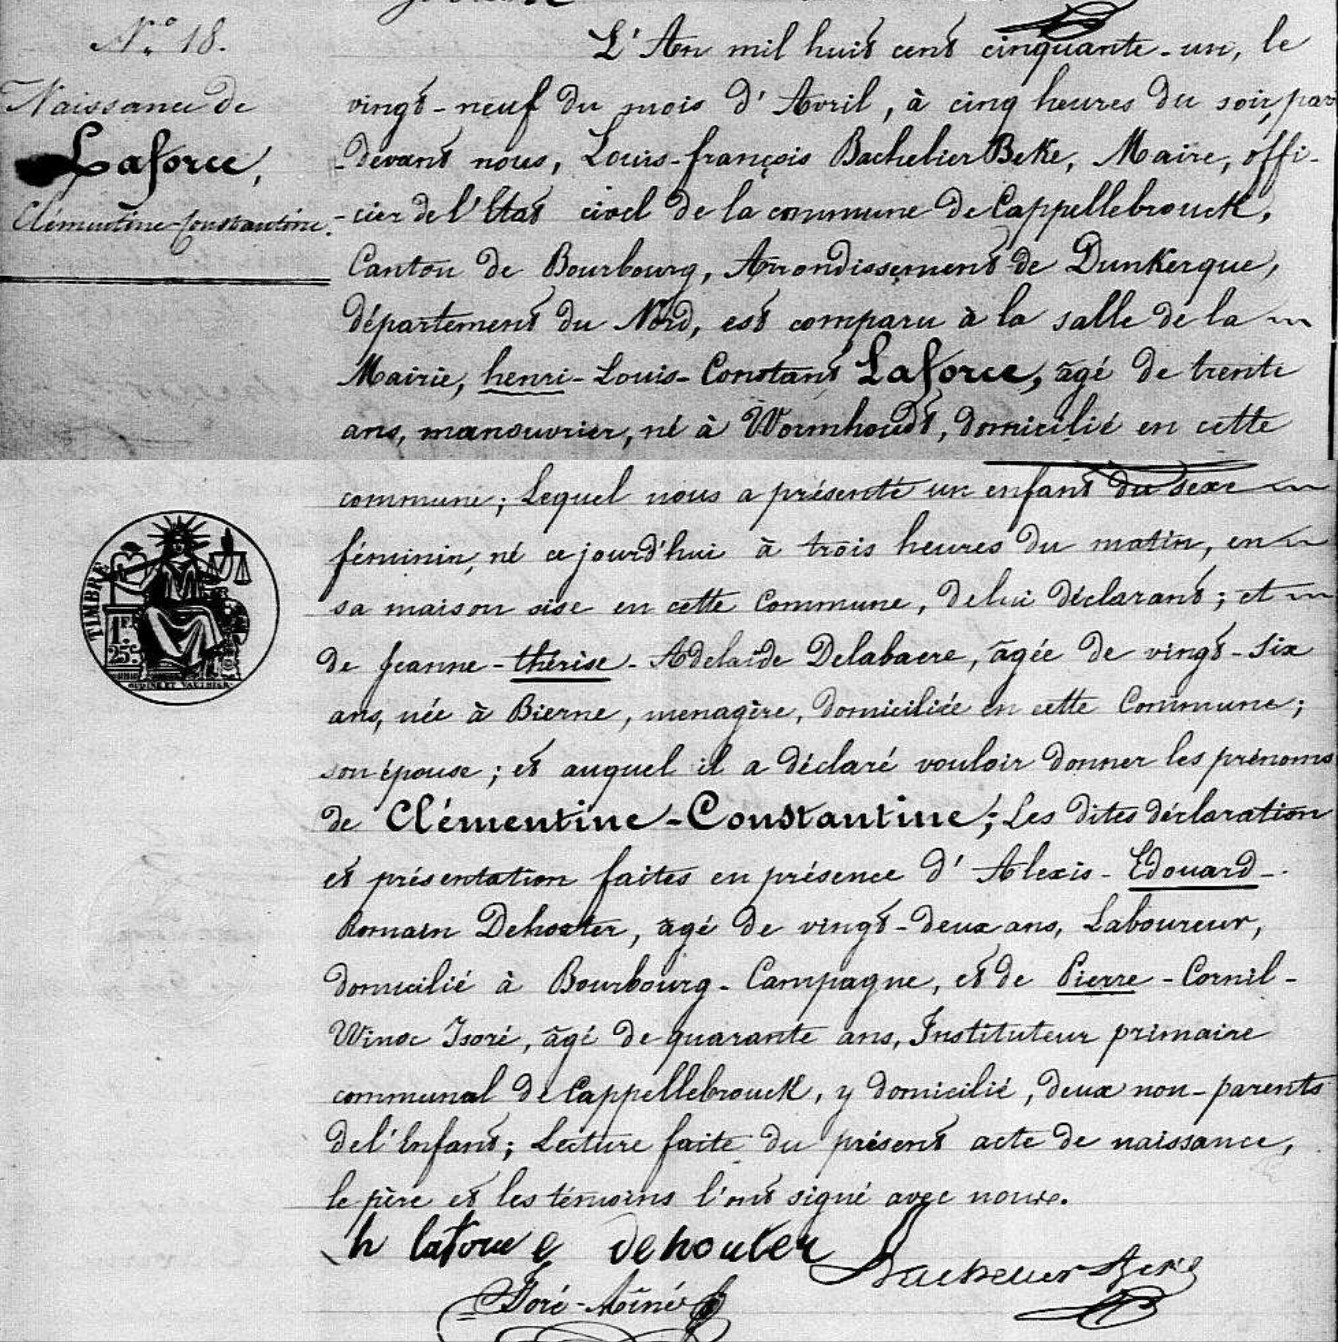 N.° 18.
Naissance de
Laforce,
Clémentine-Constantine.
L'An mil huit cent cinquante-un, le
vingt-neuf du mois d'Avril, à cinq heures du soir, par
-devant nous, Louis-françois Bachelier Beke, Maire, offi-
-cier de l'Etat civil de la commune de Cappellebrouck,
Canton de Bourbourg, Arrondissement de Dunkerque,
département du Nord, est comparu à la salle de la
Mairie, henri-Louis-Constant Laforce, âgé de trente
ans, manouvrier, né à Wormhoudt, domicilié en cette
commune; Lequel nous a présenté un enfant du sexe
féminin, né ce jourd'hui à trois heures du matin, en
sa maison sise en cette Commune, de lui déclarant; et
de Jeanne-thérèse-Adelaïde Delabaere, âgée de vingt-six
ans, née à Bierne, menagère, domiciliée en cette Commune;
son épouse; et auquel il a déclaré vouloir donner les prénoms
de Clémentine-Constantine; Les dites déclaration
et présentation faites en présence d'Alexis-Edouard-
Romain Dehouter, âgé de vingt-deux ans, Laboureur,
domicilié à Bourbourg-Campagne, et de Pierre-Cornil-
Winoc Isoré, âgé de quarante ans, Instituteur primaire
communal de Cappellebrouck, y domicilié, deux non-parents
de l'Enfant; Lecture faite du présent acte de naissance,
le père et les témoins l'ont signé avec nous.
h laforce dehouter Bachelier Beke
Isoré-Aîné
TIMBRE
1 F.
25 c.